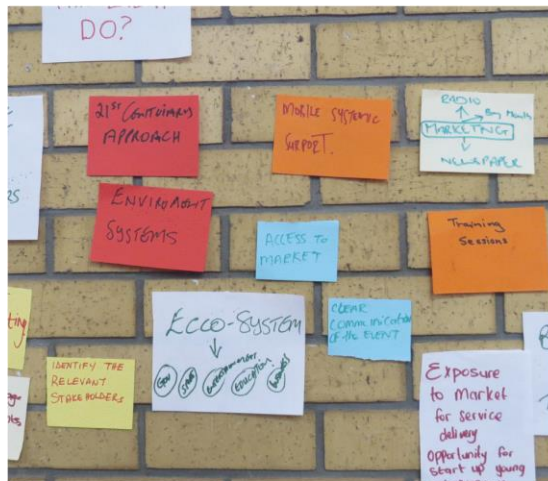 DO?
21st CENTURIARY
APPROACH
MOBILE SYSTEMIC
SUPPORT.
RADIO
MARKETING
NEWSPAPER
ENVIROMENT
SYSTEMS
ACCESS TO
MARKET
Training
Sessions
ECCO-SYSTEM
EDUCATION
CLEAR
Communication
OF the EVENT
IDENTIFY THE
RELEVANT
STAKEHOLDERS
Exposure
to Market
for service
delivery
Opportunity for
start up young